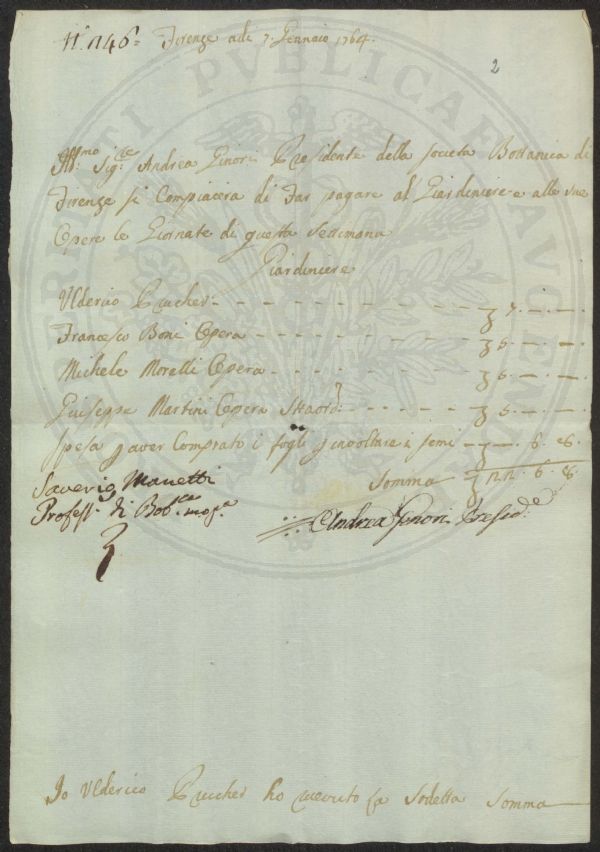 N.º 146. Firenze adi 7. Gennaio 1764.
2
Ill:mo Sig:re Andrea Ginori Presidente della Società Bottanica di
Firenze si Compiacerà di Far pagare al Giardiniere e alle sue
Opere le Giornate di questa Settimana
Giardiniere
Ulderico Prucher - - - 7. -. -.
Francesco Boni Opera - - - 5. -. -.
Michele Morelli Opera - - - 5. -. -.
Giuseppe Martini Opera Straord: - - - 5. -. -.
Spesa p aver Comprato i fogli p involtare i semi - - 6. 8.
Somma 22. 6. 8.
Saverio Manetti
Profess: di Bot:ca
Andrea Ginori Presid:e
Io Ulderico Prucher ho ricevuto la Sodetta Somma
PUBLICAE